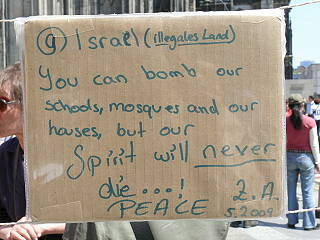 @ Israel (illegales Land)
You can bomb our
schools, mosques and our
houses, but our
Spirit will never
die...!
PEACE
Z.A.
5.2009